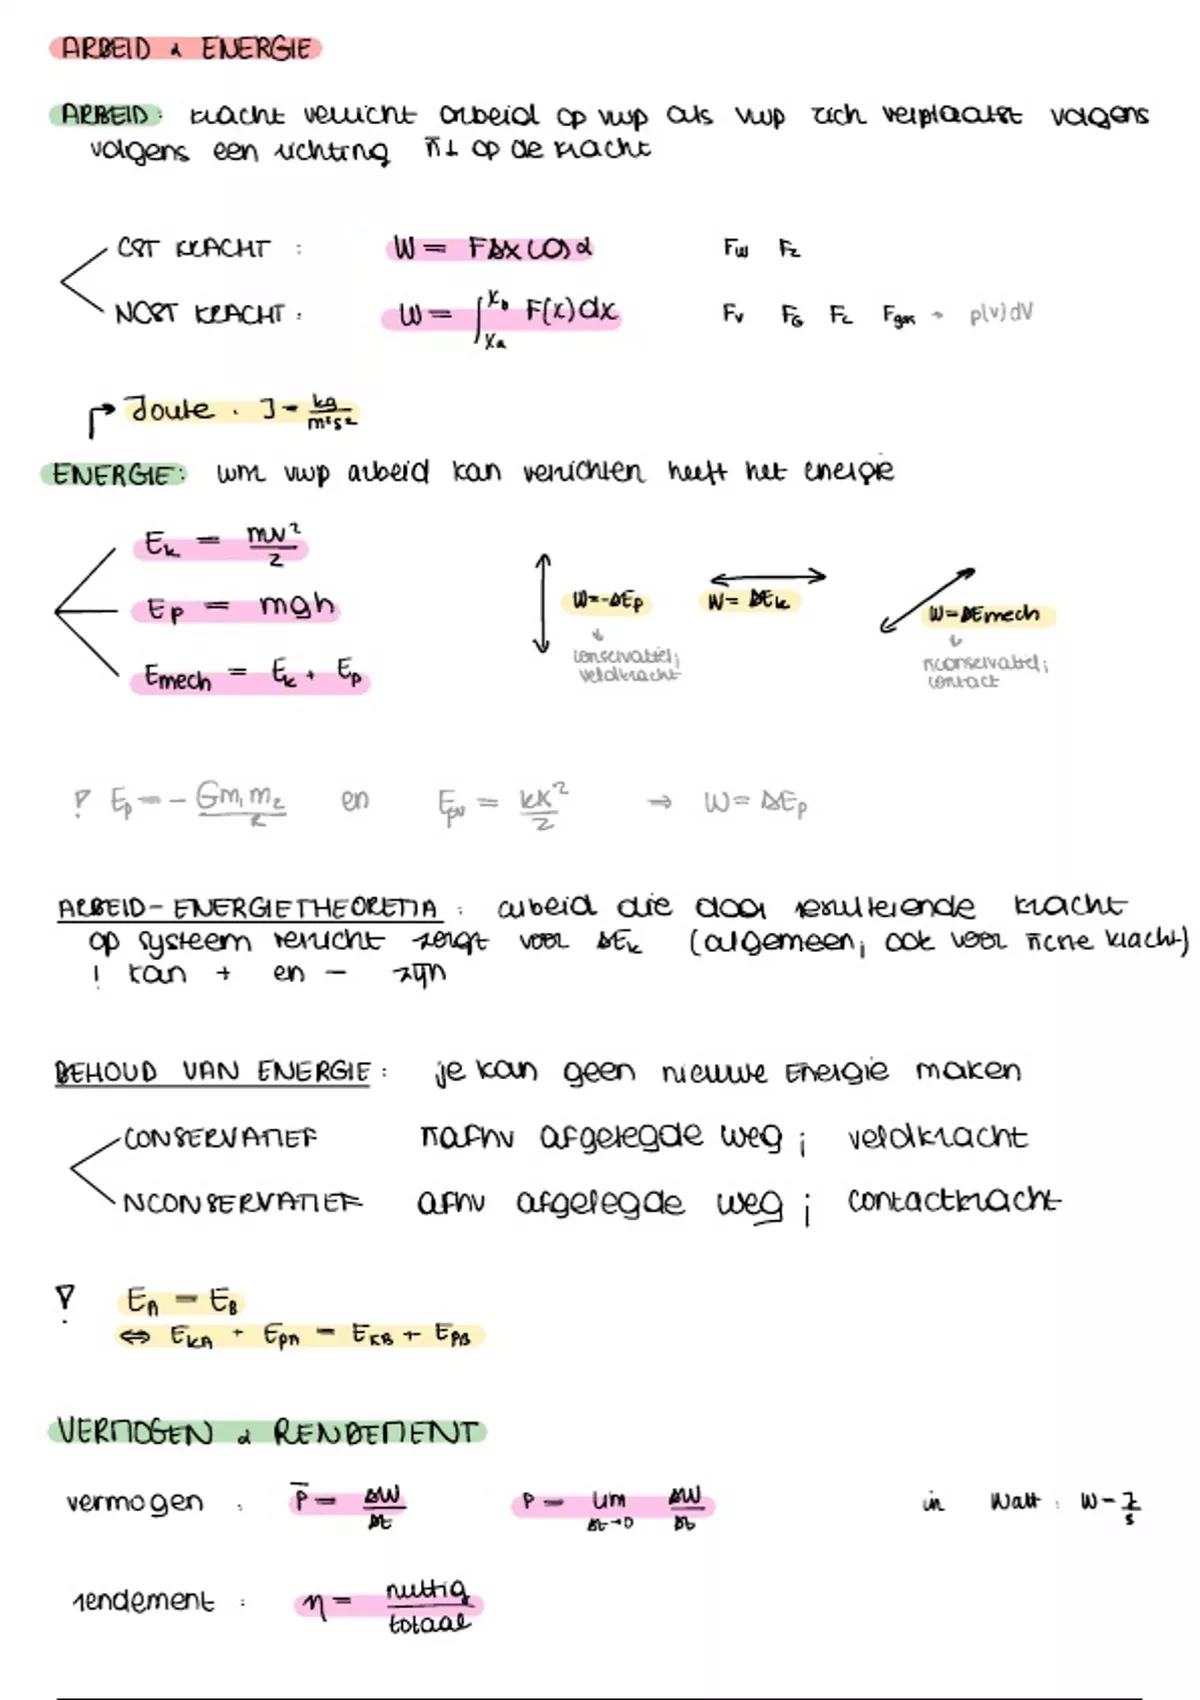 ARBEID & ENERGIE
ARBEID: kracht verricht arbeid op vwp als vwp zich verplaatst volgens
volgens een richting n̄⊥ op de kracht
CST KRACHT : W = FΔx cos α Fw Fz
NCST KRACHT : W = ∫_{xa}^{xb} F(x)dx Fv FG FL Fgas → p(v)dV
↱ Joule : J = kg/m²s²
ENERGIE: wnr vwp arbeid kan verrichten heeft het energie
Ek = mv²/2
Ep = mgh
Emech = Ek + Ep
W = -ΔEp
conservatief;
veldkracht
W = ΔEk
W = ΔEmech
nconservatief;
contact
! Ep = - Gm₁m₂/R en Epv = kx²/2 ⇒ W = ΔEp
ARBEID-ENERGIETHEOREMA : arbeid die door resulterende kracht
op systeem verricht zorgt voor ΔEk (algemeen; ook voor n̄cne kracht)
! kan + en - zijn
BEHOUD VAN ENERGIE : je kan geen nieuwe Energie maken
CONSERVATIEF n̄afhv afgelegde weg ; veldkracht
NCONSERVATIEF afhv afgelegde weg ; contactkracht
! EA = EB
⇔ EKA + EPA = EKB + EPB
VERMOGEN & RENDEMENT
vermogen : P̄ = ΔW/Δt P = lim Δt→0 ΔW/Δt in Watt : W = J/s
rendement : η = nuttig/totaal